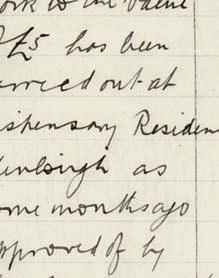 ork to the value
of £5 has been
arried out at
ispensary Residen
as
ome months ago
pproved of by